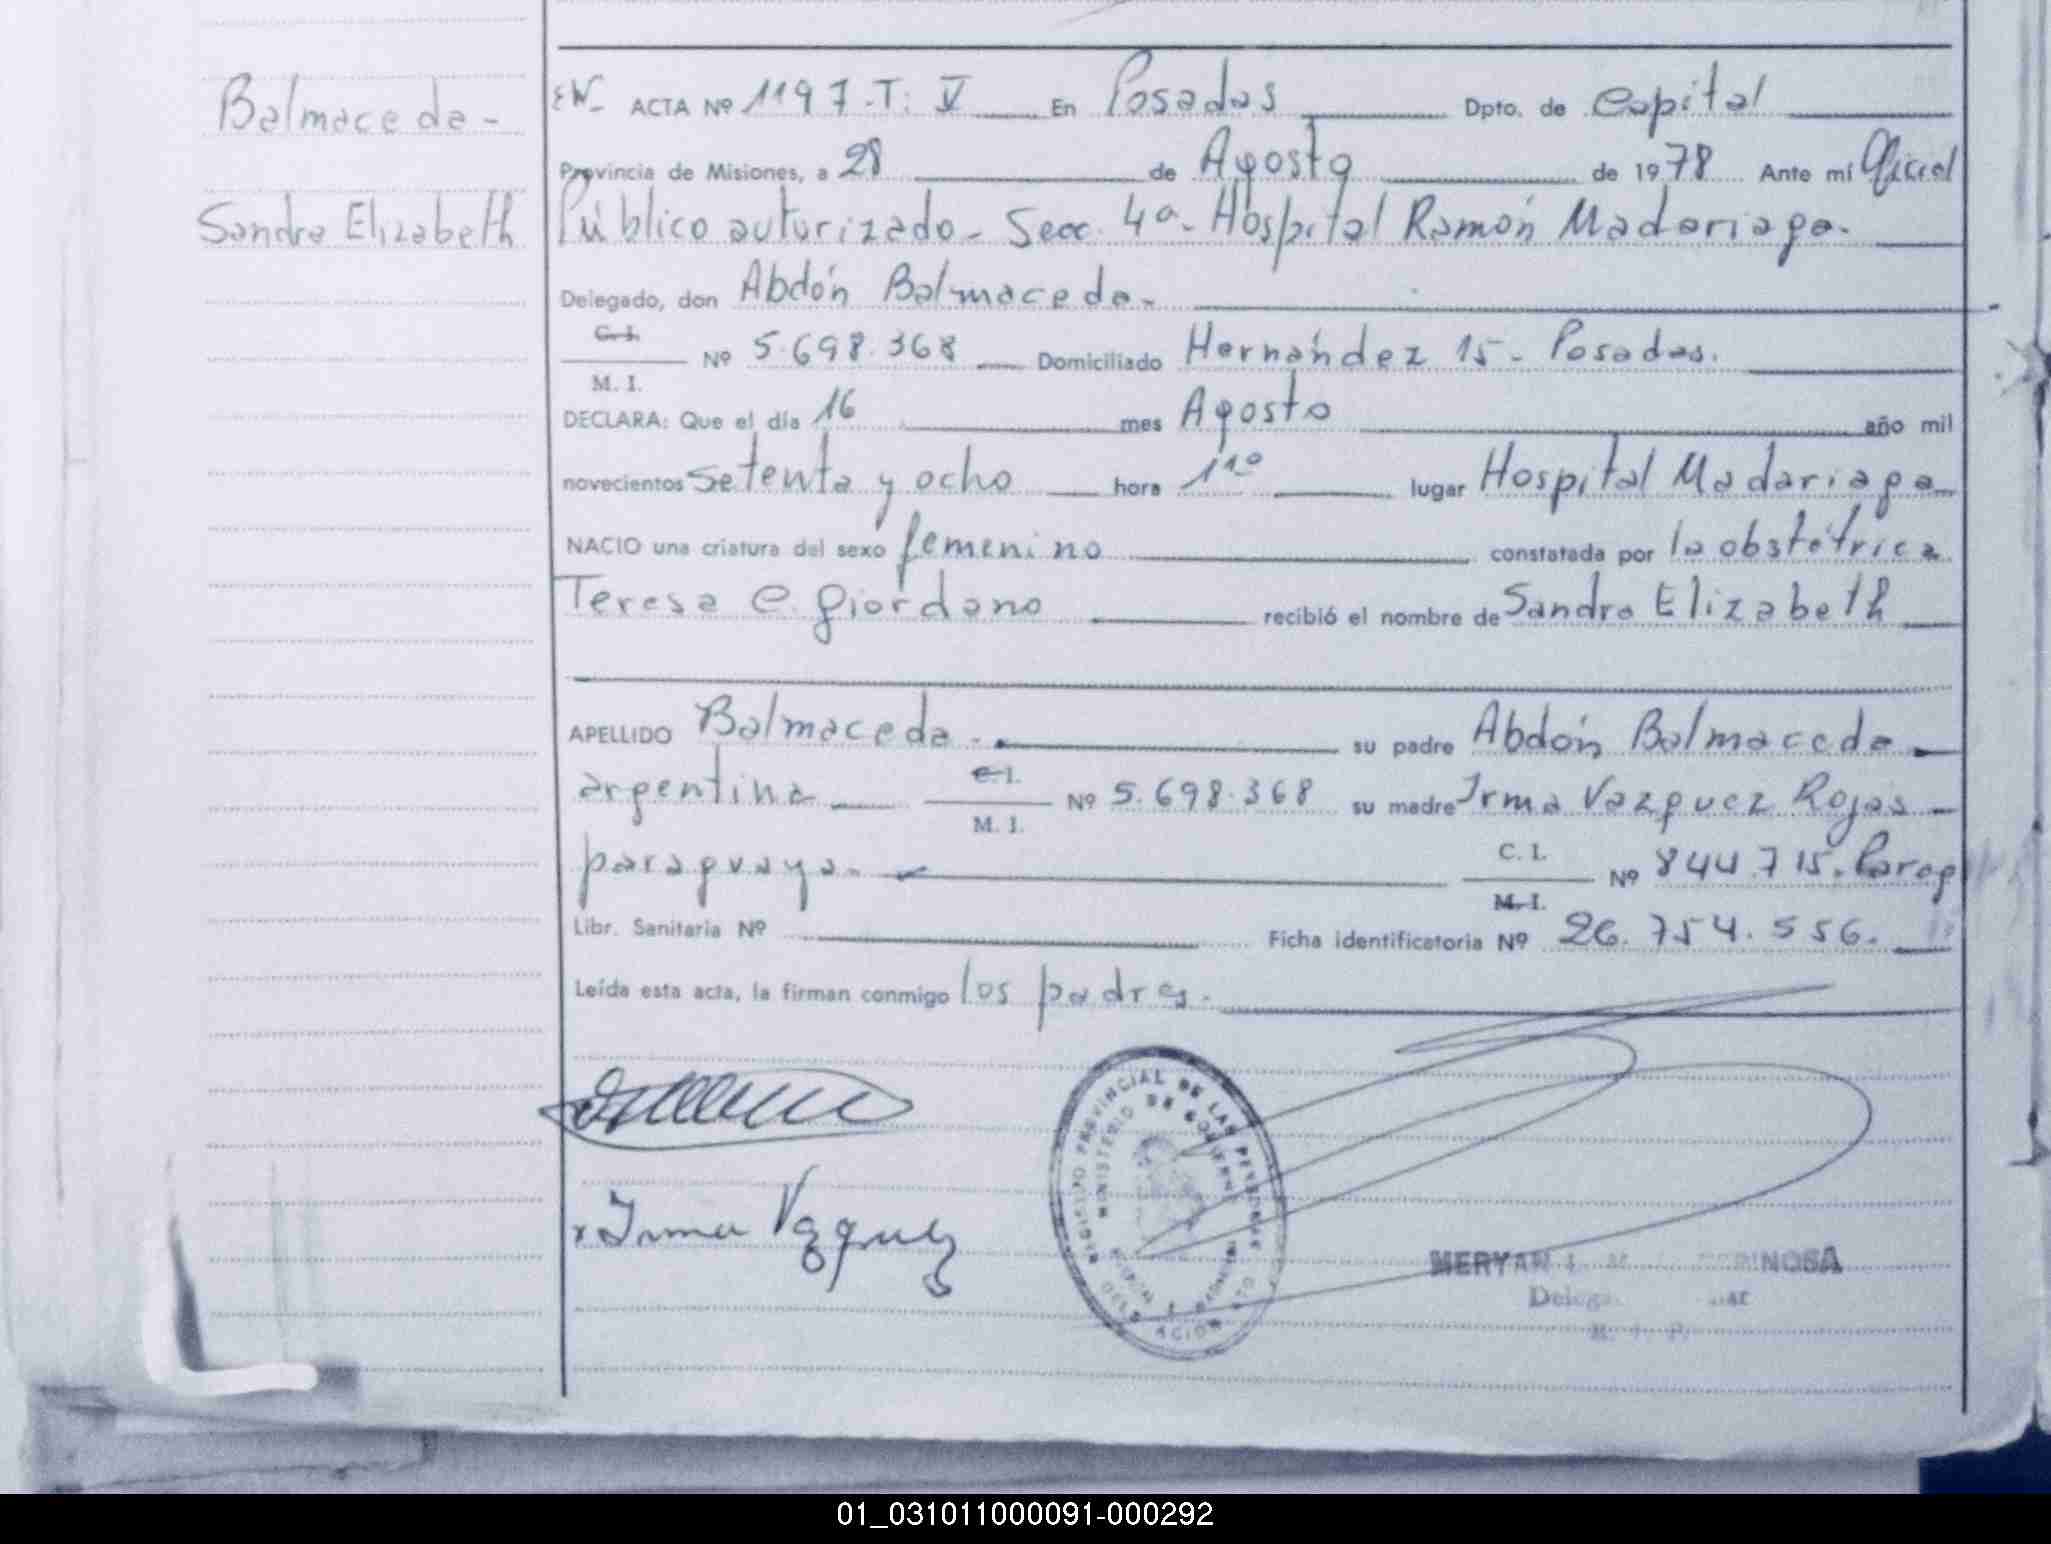 Balmaceda -
Sandra Elizabeth
EN- ACTA Nº 1197-T: V En Posadas Dpto. de Capital
Provincia de Misiones, a 28 de Agosto de 1978 Ante mí Oficial
Público autorizado - Secc. 4ª - Hospital Ramón Madariaga.
Delegado, don Abdón Balmaceda-
C. I.
M. I.
Nº 5.698.368 Domiciliado Hernández 15 - Posadas.
DECLARA: Que el día 16 mes Agosto año mil
novecientos setenta y ocho hora 11º lugar Hospital Madariaga
NACIO una criatura del sexo femenino constatada por la obstétrica
Teresa C. Giordano recibió el nombre de Sandra Elizabeth
APELLIDO Balmaceda - su padre Abdón Balmaceda
argentina C. I.
M. I.
Nº 5.698.368 su madre Irma Vazquez Rojas
paraguaya. C. I.
M. I.
Nº 844.715. Parag
Libr. Sanitaria Nº Ficha identificatoria Nº 26.754.556.
Leída esta acta, la firman conmigo los padres.
x Irma Vazquez
REGISTRO PROVINCIAL DE LAS PERSONAS
MINISTERIO DE GOBIERNO
DELEGACION
MERYAN
01_031011000091-000292